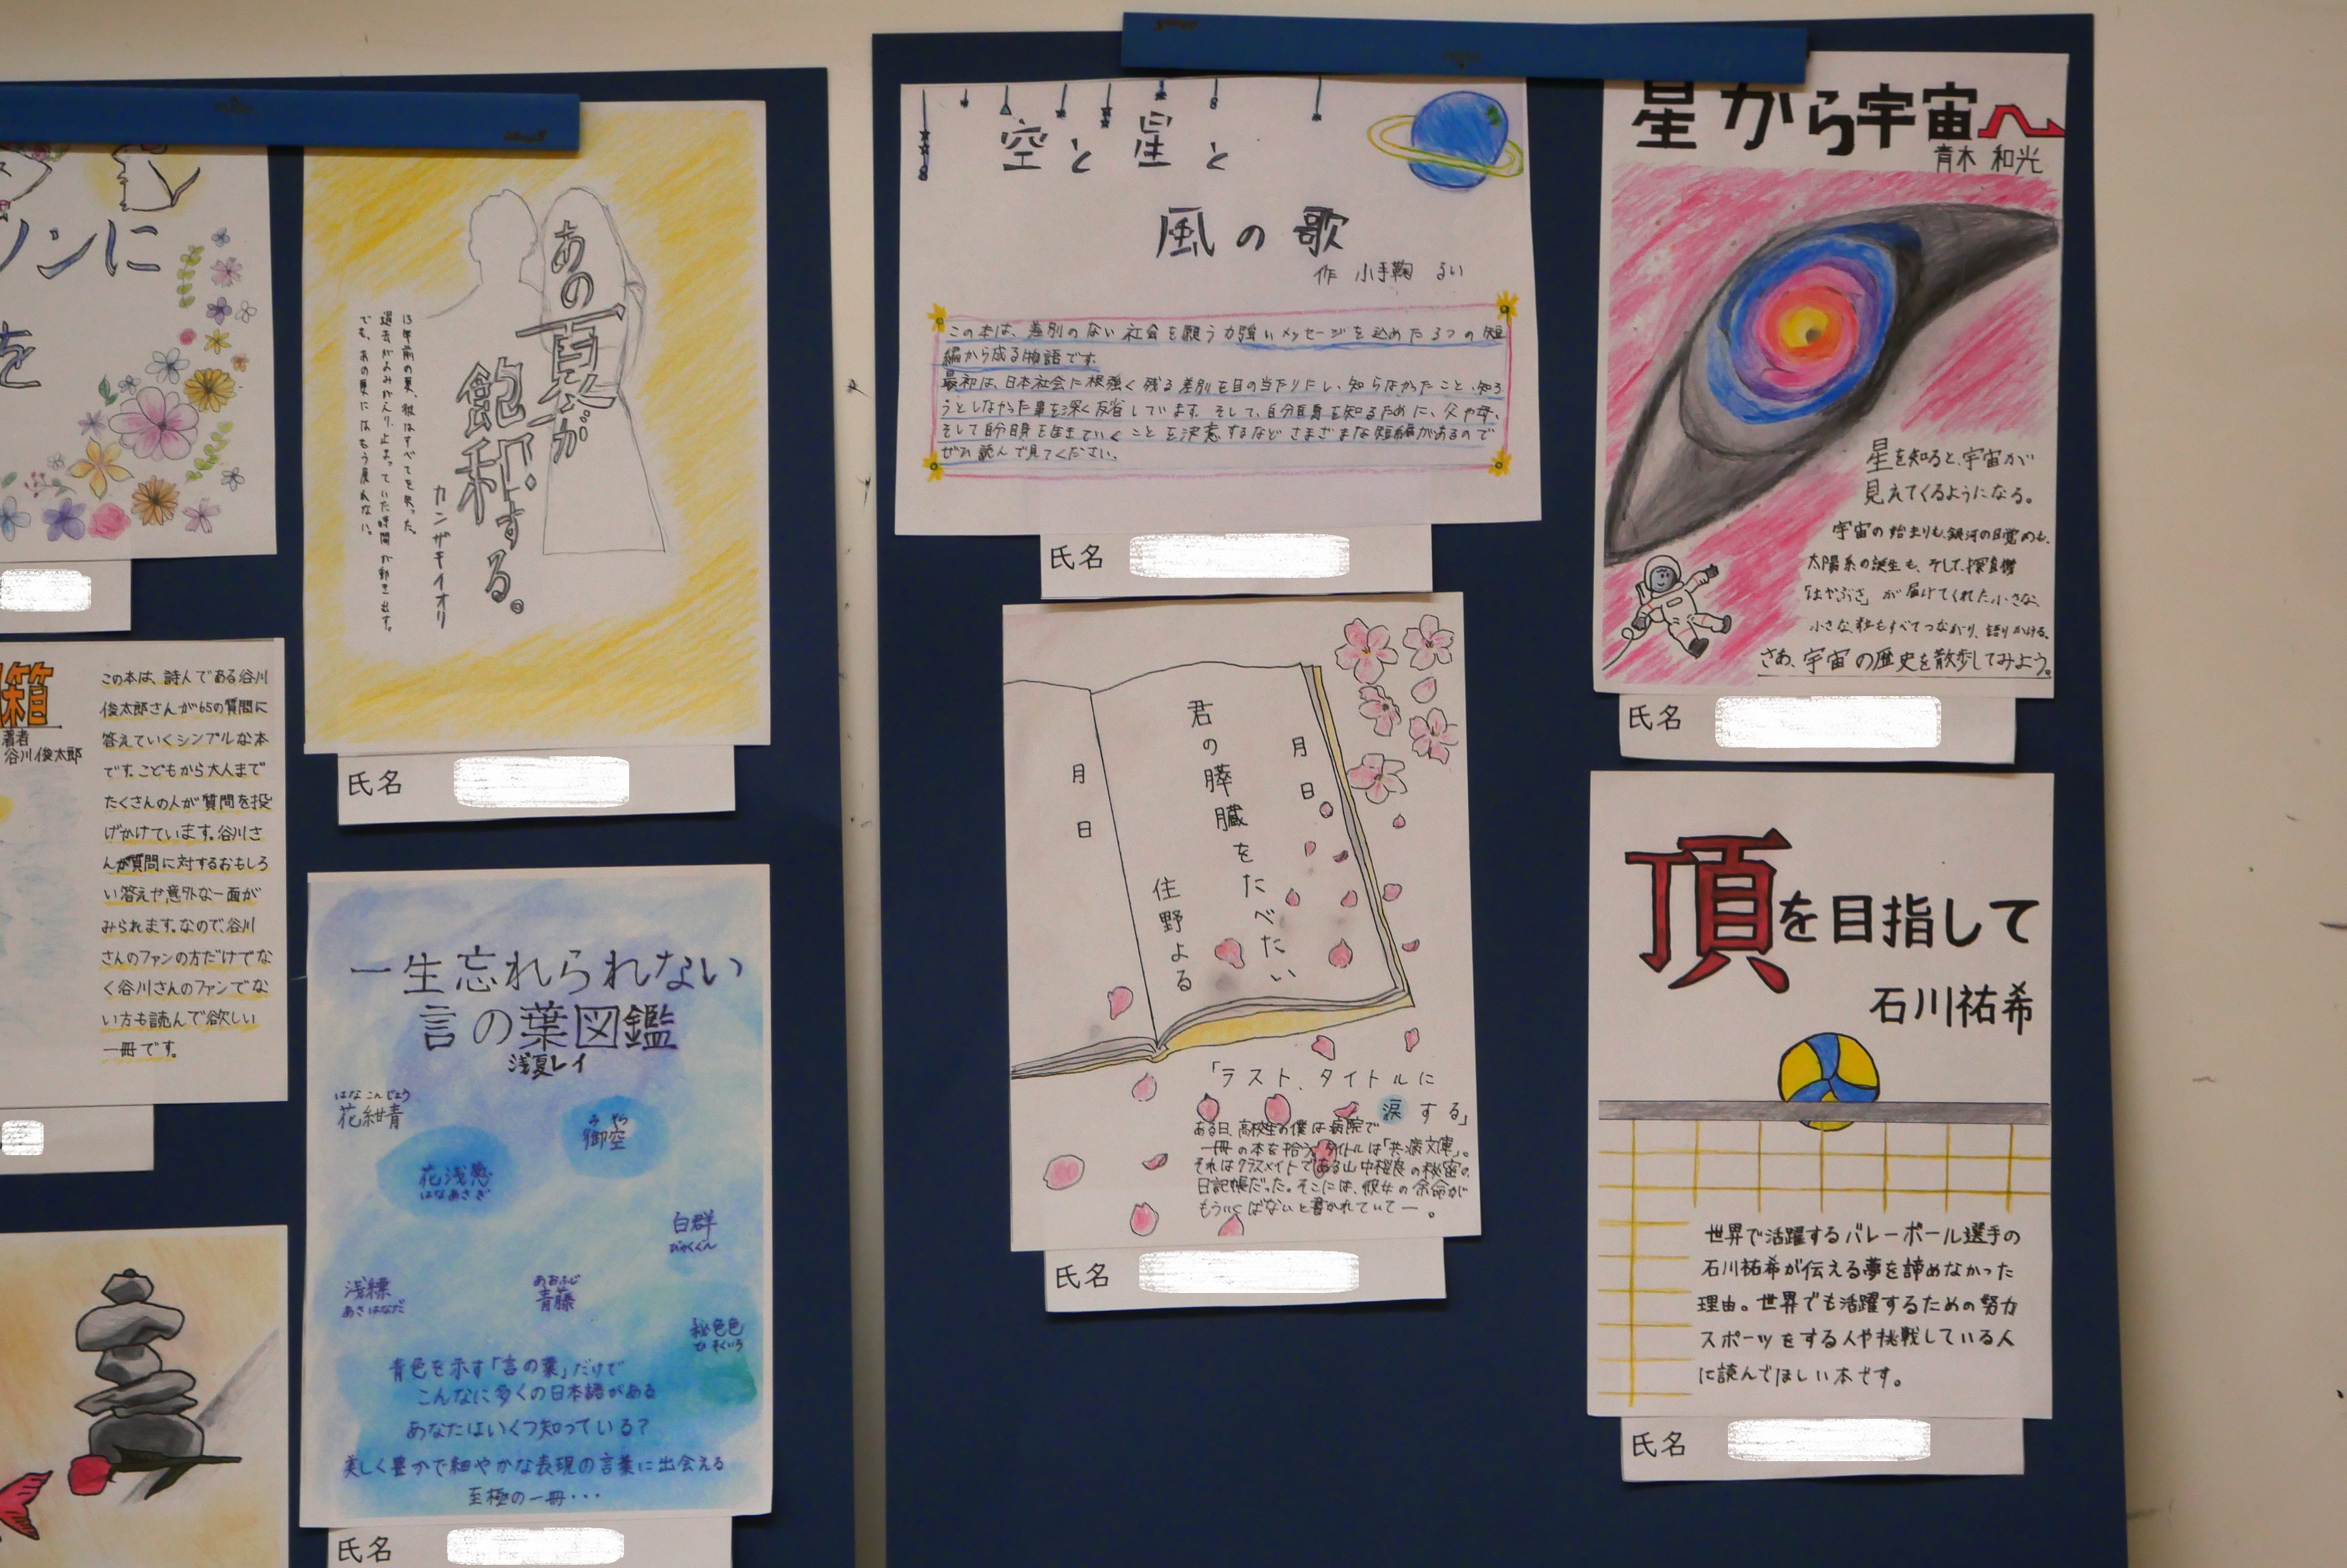 ソンに
を
箱
著者
谷川俊太郎
この本は、詩人である谷川
俊太郎さんが65の質問に
答えていくシンプルな本
です。こどもから大人まで
たくさんの人が質問を投
げかけています。谷川さ
んが質問に対するおもしろ
い答えや意外な一面が
みられます。なので、谷川
さんのファンの方だけでな
く谷川さんのファンでな
い方も読んで欲しい
一冊です。
あの夏が
飽和する。
カンザキイオリ
13年前の夏、彼はすべてを失った。
過去がよみがえり、止まっていた時間が動き出す。
でも、あの夏にはもう戻れない。
氏名
一生忘れられない
言の葉図鑑
浅夏レイ
はなこんじょう
花紺青
みそら
御空
花浅葱
はなあさぎ
白群
びゃくぐん
浅縹
あさはなだ
あおふじ
青藤
秘色色
ひそくいろ
青色を示す「言の葉」だけで
こんなに多くの日本語がある
あなたはいくつ知っている?
美しく豊かで細やかな表現の言葉に出会える
至極の一冊・・・
氏名
空と星と
風の歌
作 小手鞠 るい
この本は、差別のない社会を願う力強いメッセージを込めた3つの短
編から成る物語です。
最初は、日本社会に根強く残る差別を目の当たりにし、知らなかったこと、知ろ
うとしなかった事を深く反省しています。そして、自分自身を知るために、父や母、
そして自分自身を生きていくことを決意するなどさまざまな短編があるので
ぜひ読んで見てください。
氏名
月 日
君の膵臓をたべたい
住野よる
月 日
「ラスト、タイトルに
涙する」
ある日、高校生の僕は病院で
一冊の本を拾う。タイトルは「共病文庫」。
それはクラスメイトである山内桜良の秘密の
日記帳だった。そこには、彼女の余命が
もういくばないと書かれていて―。
氏名
星から宇宙へ
青木 和光
星を知ると、宇宙が
見えてくるようになる。
宇宙の始まりも、銀河の目覚めも、
太陽系の誕生も、そして、探査機
「はやぶさ」が届けてくれた小さな、
小さな粒もすべてつながり、語りかける。
さあ、宇宙の歴史を散歩してみよう。
氏名
頂を目指して
石川祐希
世界で活躍するバレーボール選手の
石川祐希が伝える夢を諦めなかった
理由。世界でも活躍するための努力
スポーツをする人や挑戦している人
に読んでほしい本です。
氏名